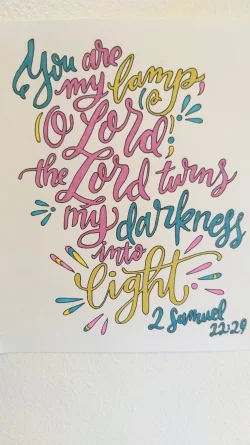 You are
my lamp,
O Lord;
the Lord turns
my darkness
into
light.
2 Samuel
22:29